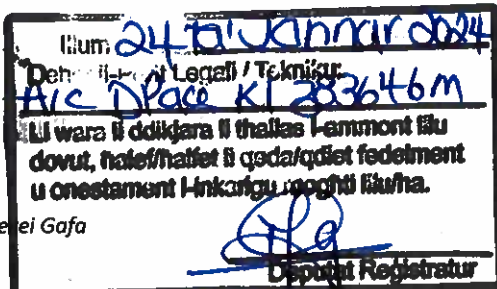 Illum 24 ta' Jannar 2024
Deher il-Perit Legali / Tekniku:
A/C DPace KI 283646M
Li wara li ddikjara li thallas l-ammont lilu
dovut, halef/halfet li qeda/qdiet fedelment
u onestament l-inkarigu moghti lilu/ha.
Gafa
Deputat Registratur